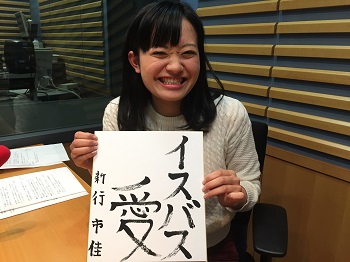 イスバス
愛
新行市佳